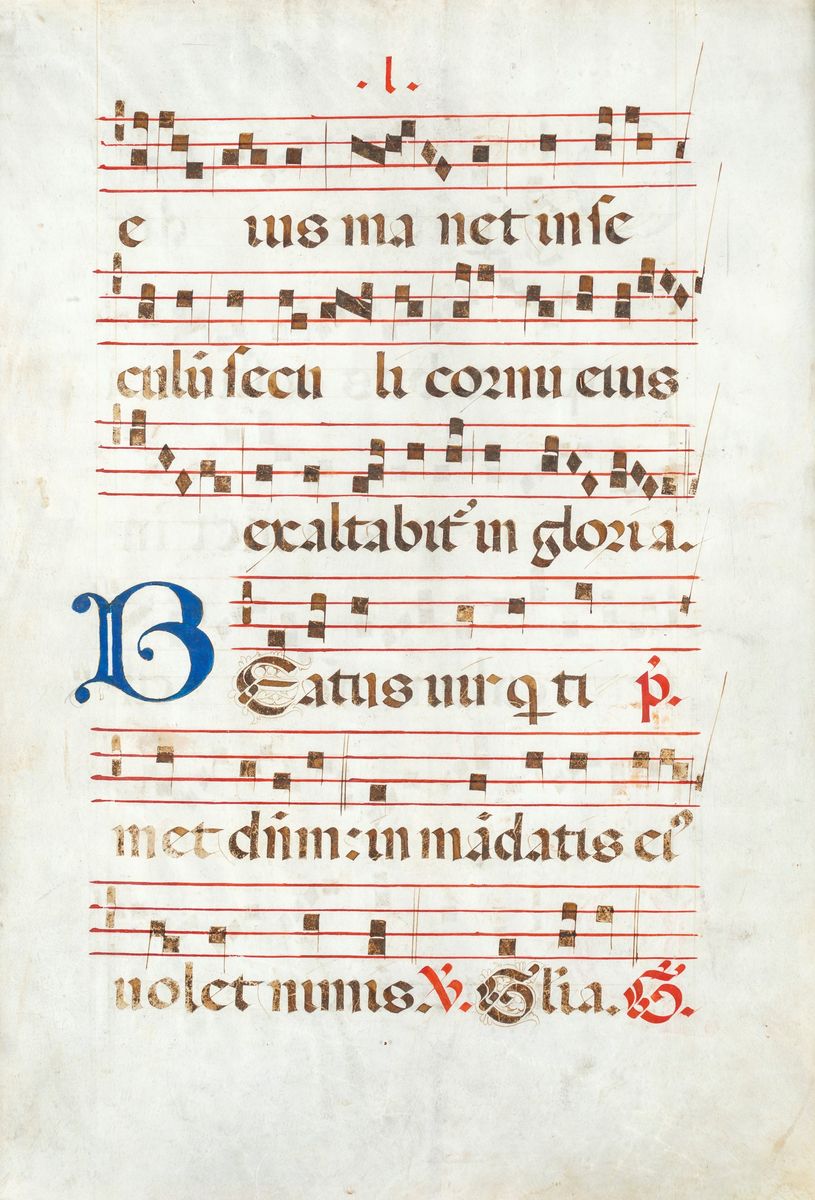 .l.
e ius ma net in se
culū secu li cornu eius
exaltabit᷑ in gloria.
BEatus uir q ti p̍.
met dūm: in mādatis ei⁹
uolet nimis. V̍. Gl̍ia. G̍.